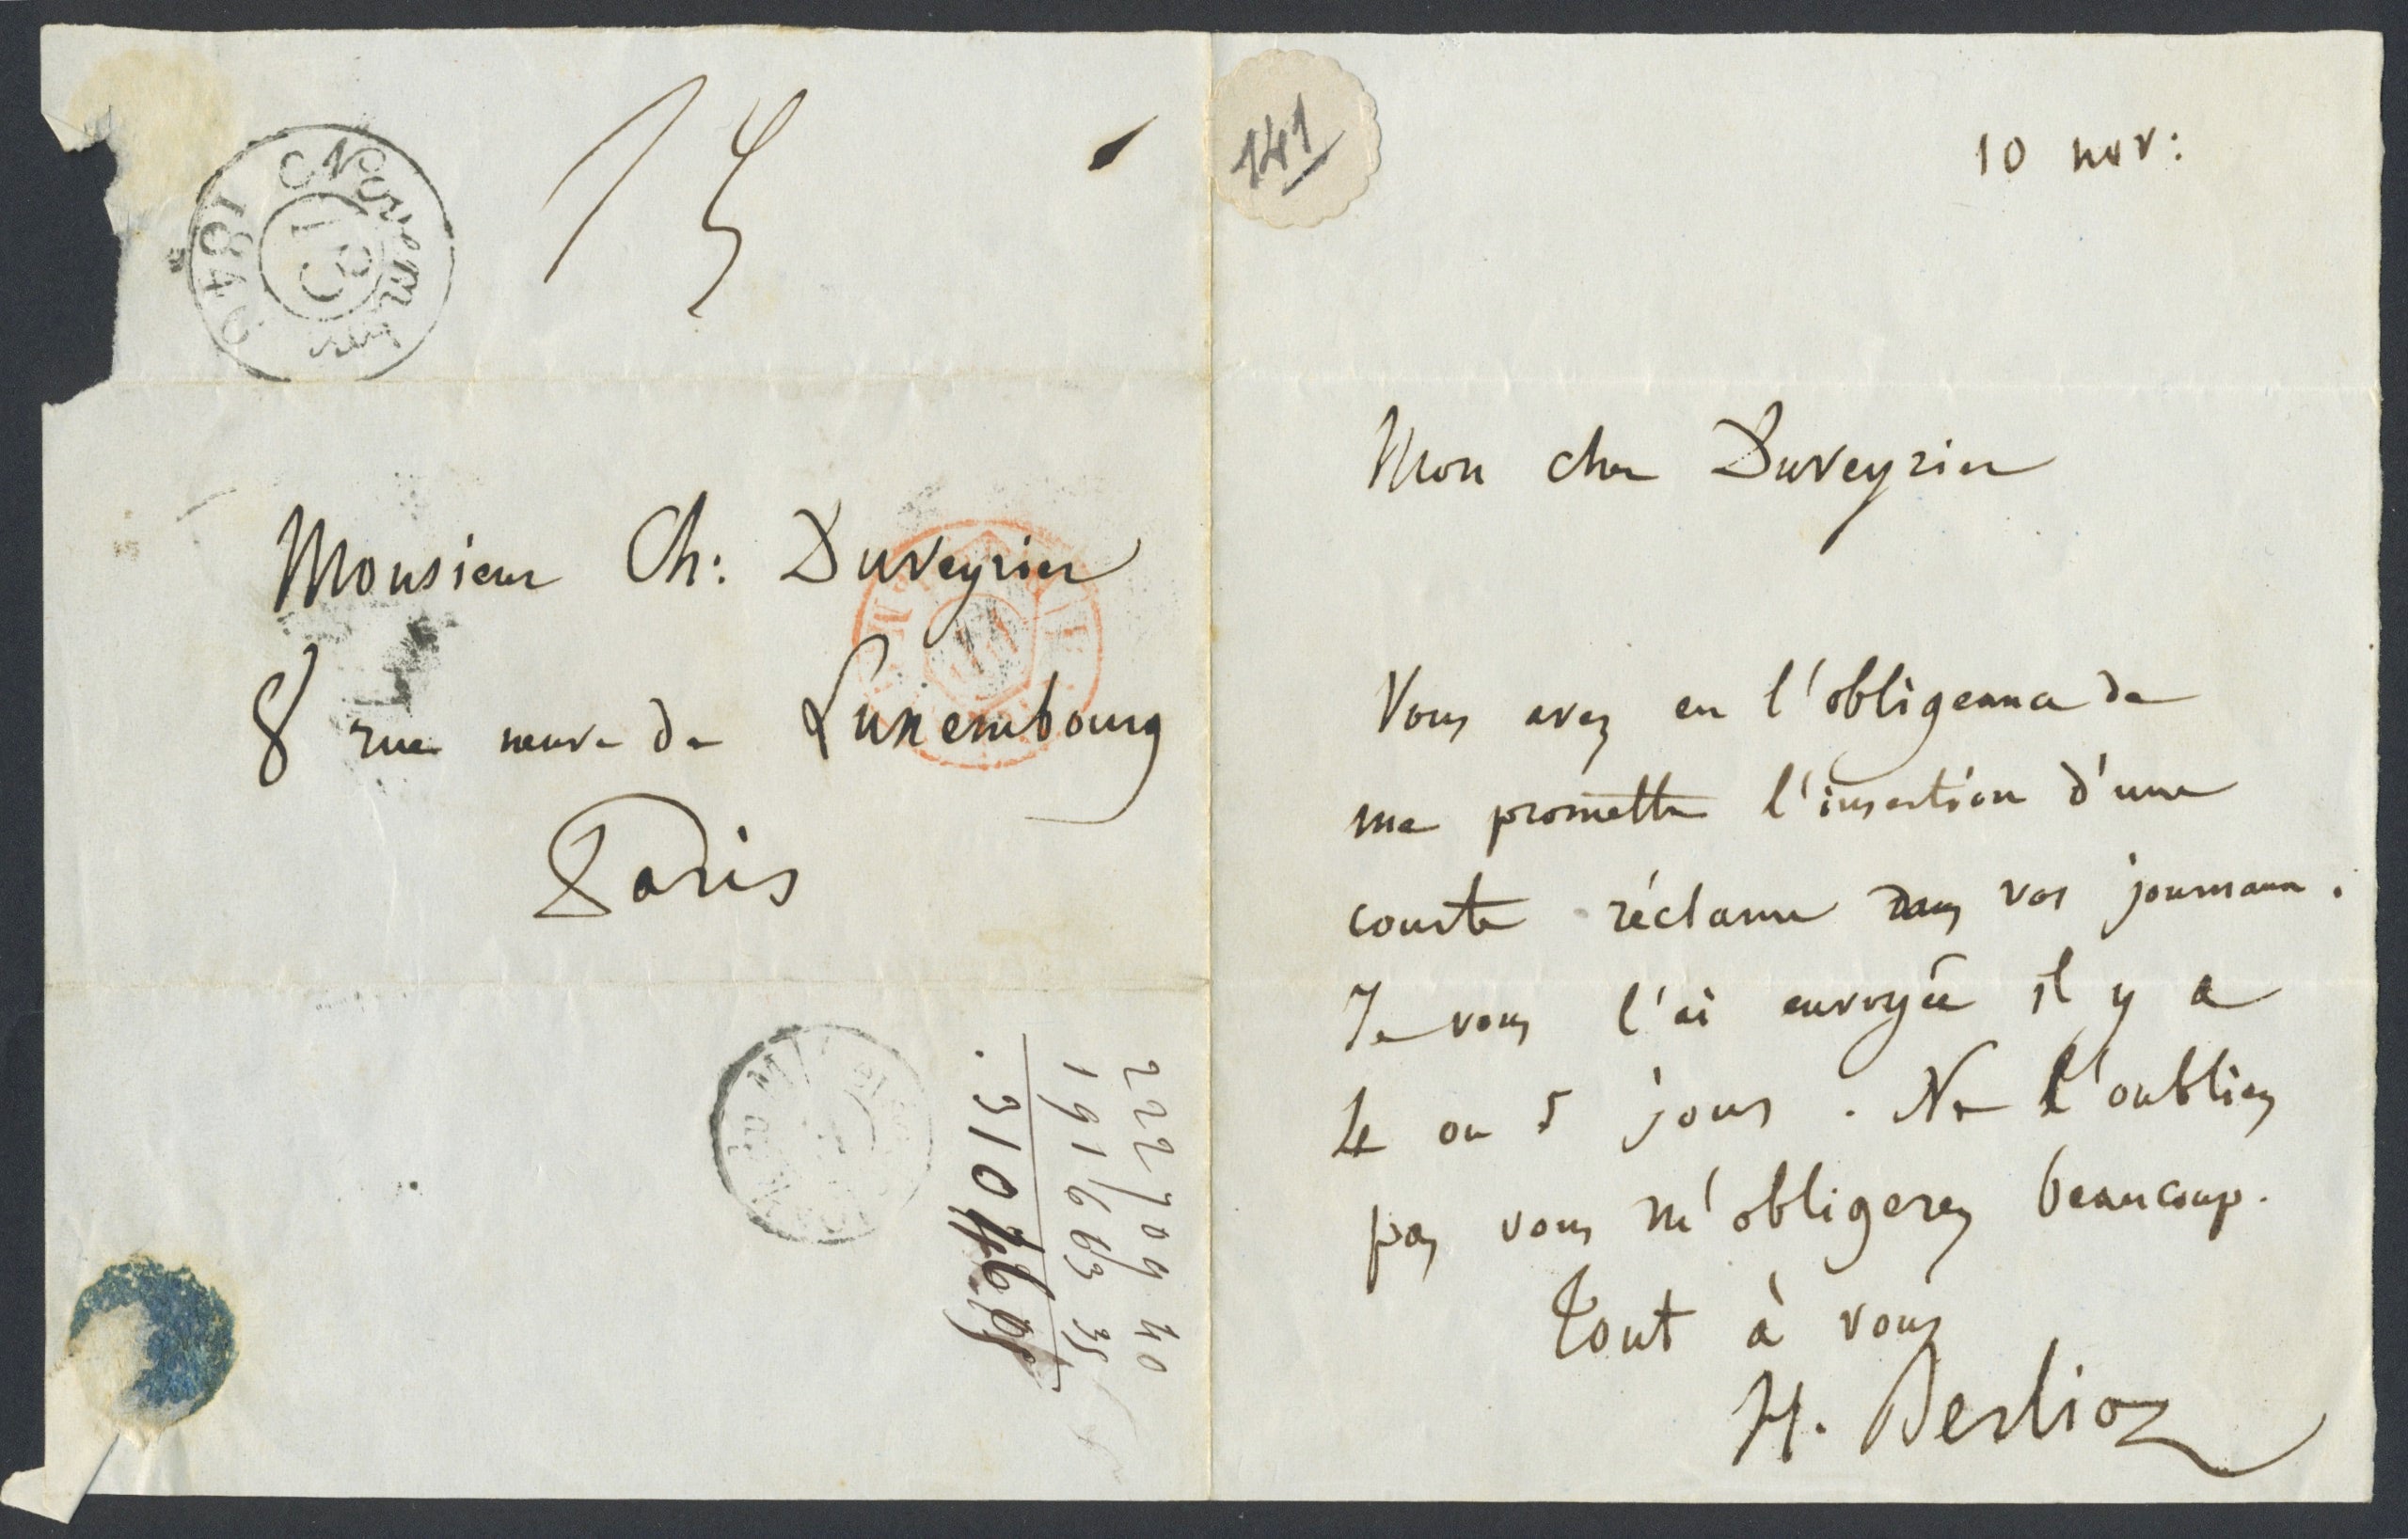 Novembre
13
1846
Monsieur Ch: Duveyrier
8 rue neuve de Luxembourg
Paris
222709 40
191663 35
31046 05
141
10 nov:
Mon cher Duveyrier
Vous avez eu l'obligeance de
me promettre l'insertion d'une
courte réclame dans vos journaux.
Je vous l'ai envoyée il y a
4 ou 5 jours. Ne l'oubliez
pas vous m'obligerez beaucoup.
Tout à vous
H. Berlioz